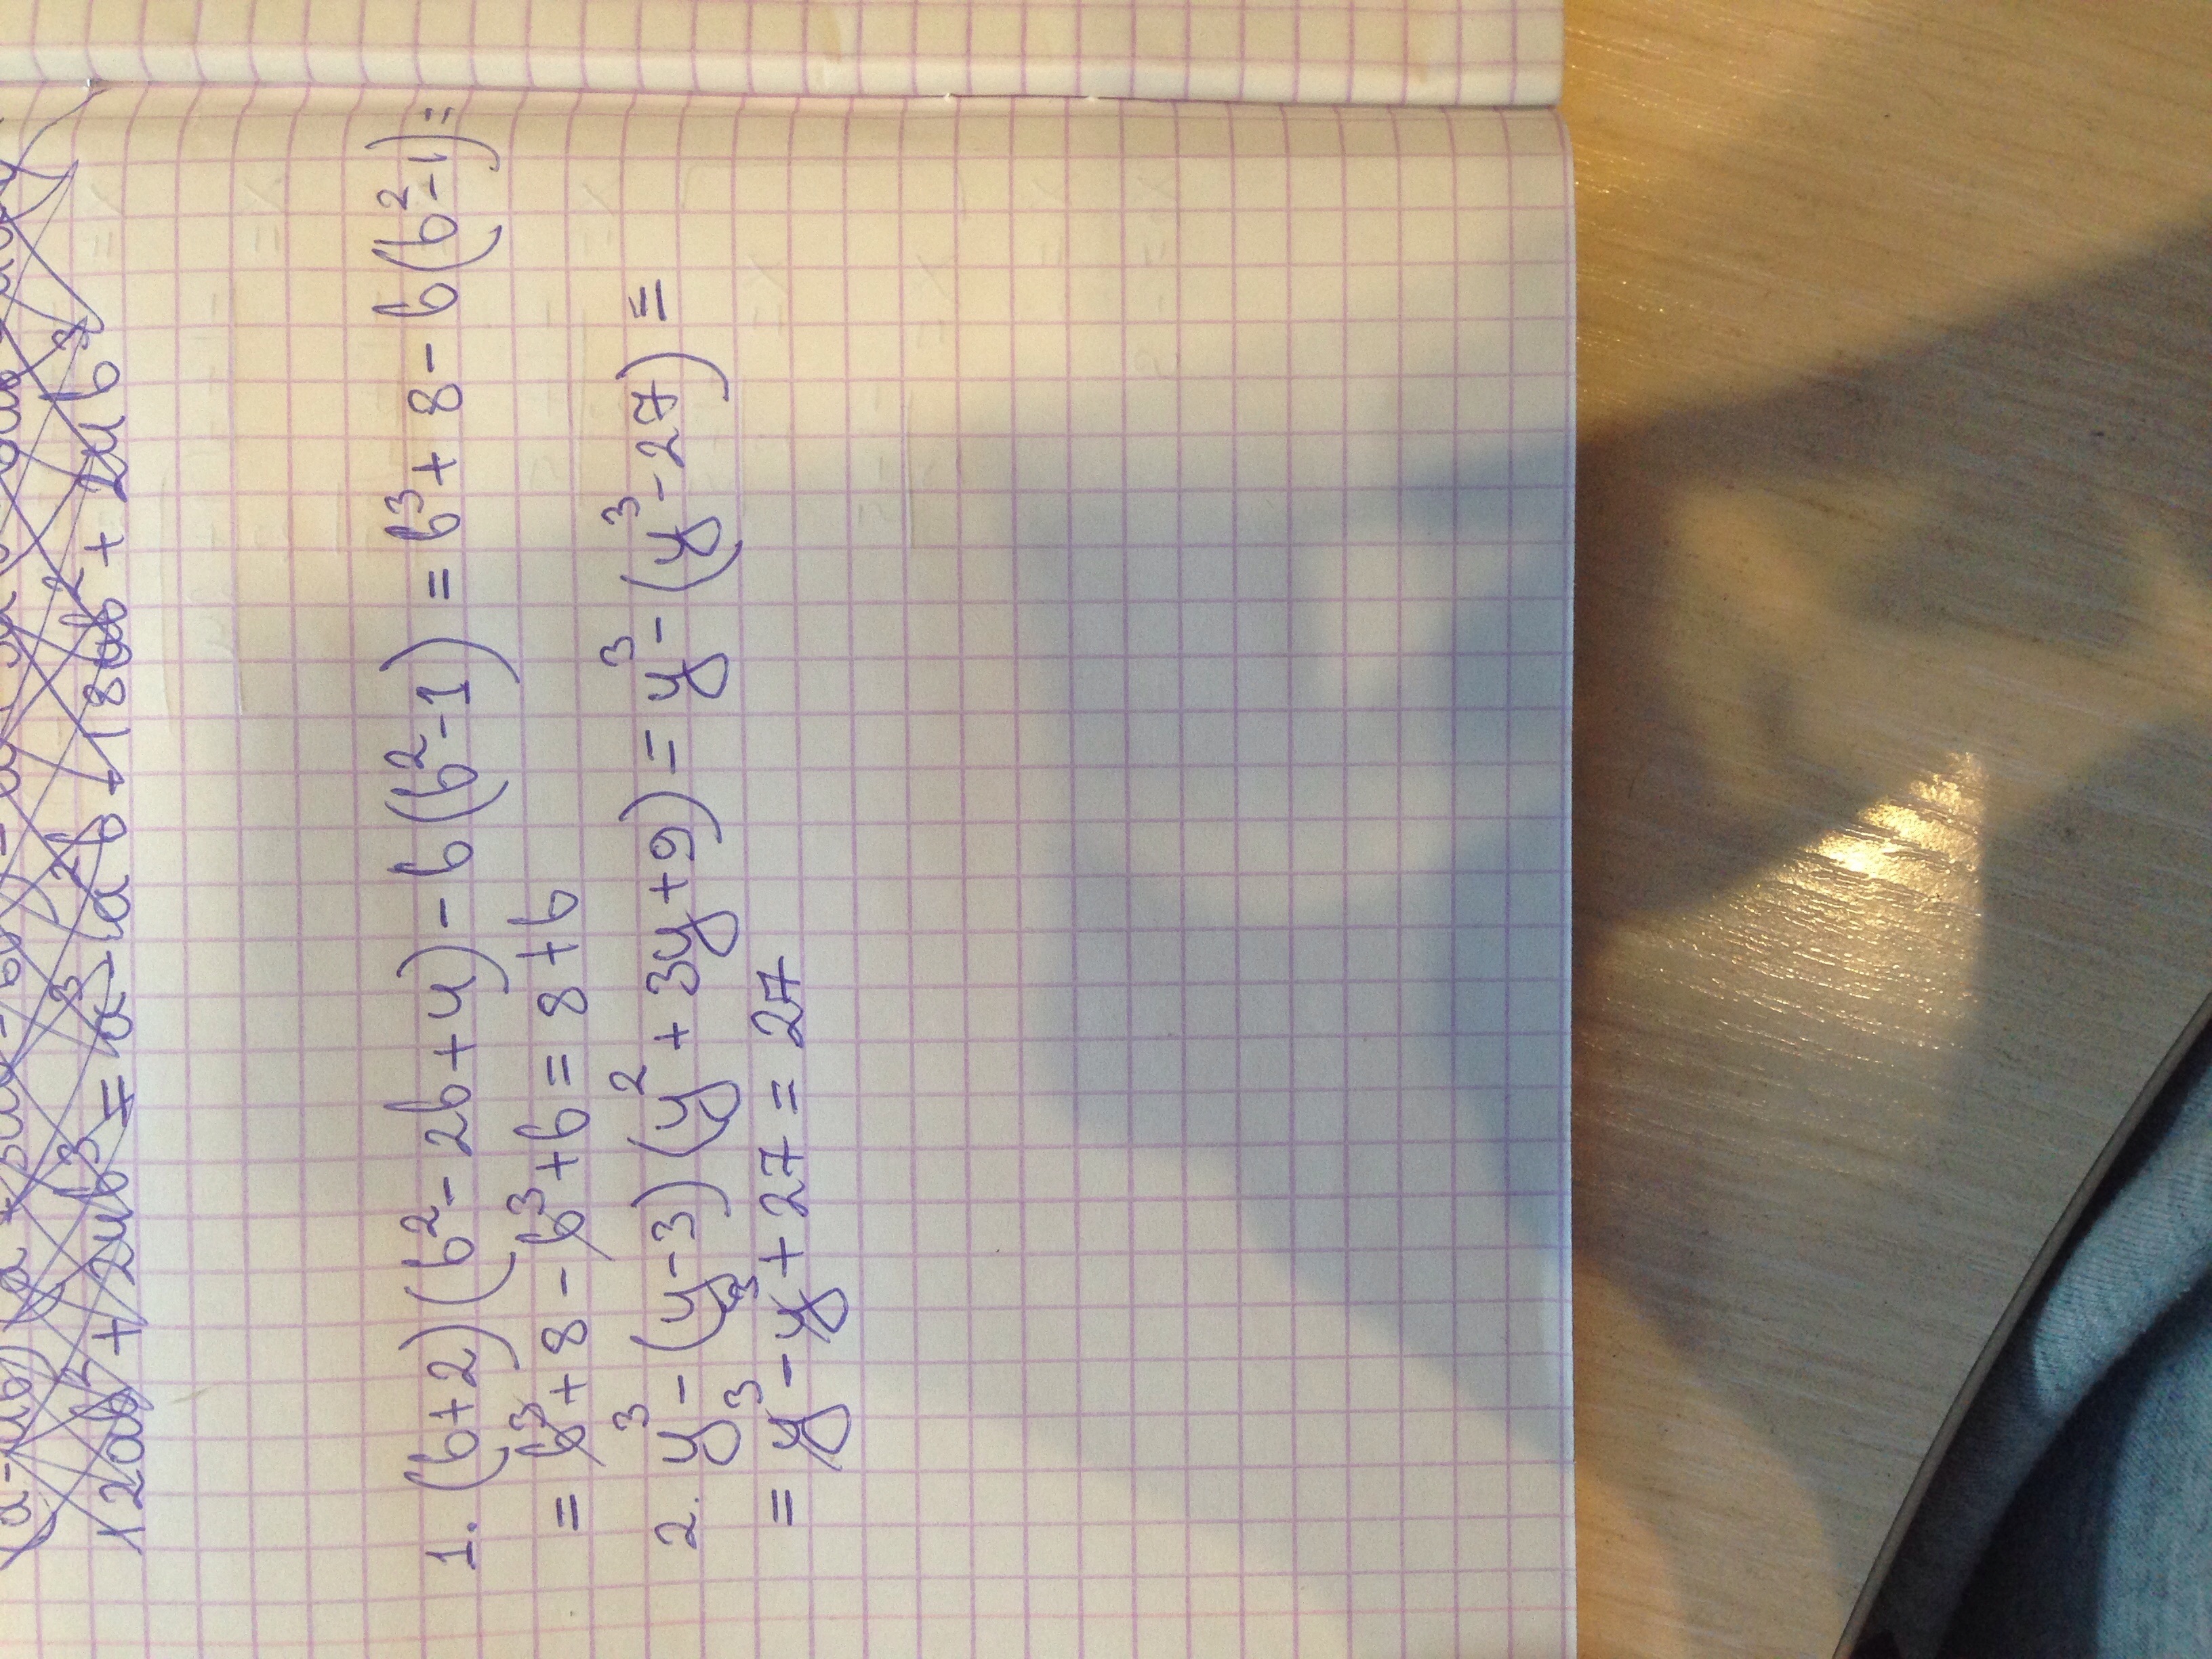 12ab² + 2ab³ = a³ - 6a²b + 18ab² + 2ab³
1. (b+2)(b²-2b+4)-b(b²-1) = b³+8-b(b²-1)=
= b³+8-b³+b=8+b
2. y³-(y-3)(y²+3y+9)=y³-(y³-27)=
= y³-y³+27=27